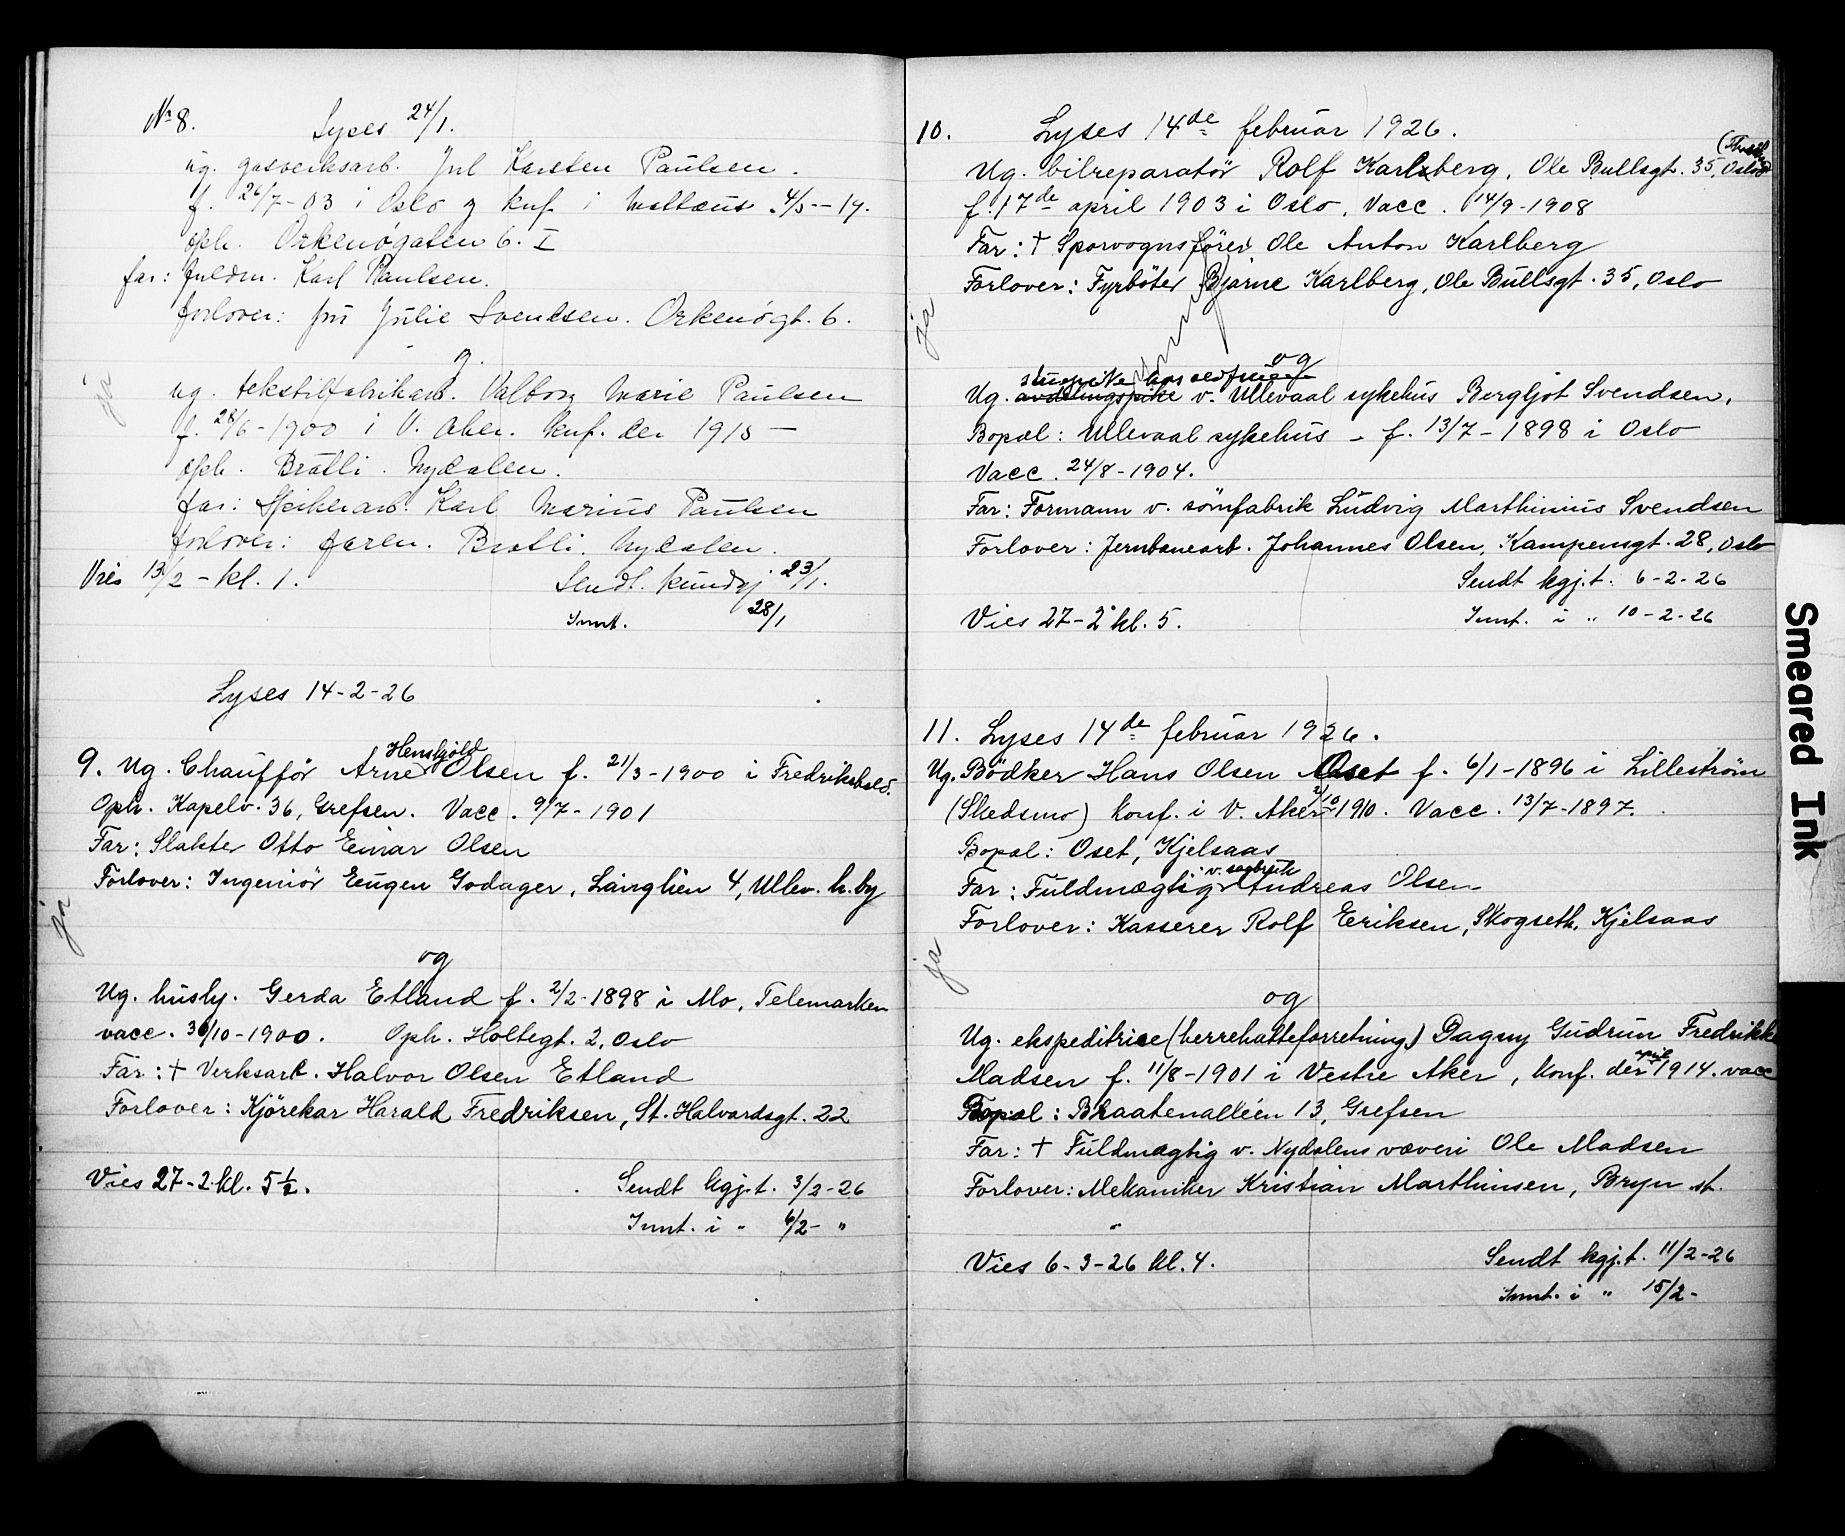 No 8. Lyses 24/1.
ug. gasverksarb. Jul Karsten Paulsen.
f. 26/7-03 i Oslo og knf. i Mattæus 4/5-19.
oph. Orkenøgaten 6. I
far: fuldm. Karl Paulsen.
forlover: fru Julie Svendsen. Orkenøgt. 6.
og
ja
ug. tekstilfabrikarb. Valborg Marie Paulsen
f. 28/6-1900 i V. Aker. knf. der 1915 -
oph. Bratli. Nydalen.
far: Spikerarb. Karl Marius Paulsen
forlover: faren. Bratli. Nydalen.
Vies 13/2 - kl. 1. Sendt. kundgj 23/1.
Innt. 28/1
Lyses 14-2-26
Henskjöld
9. Ug. Chauffør Arne Olsen f. 21/3-1900 i Fredrikshald.
Oph. Kapelv. 36, Grefsen. Vacc. 9/7-1901
Far: Slakter Otto Einar Olsen
Forlover: Ingeniör Eugen Godager, Langlien 4, Ullev. h. by
ja
og
Ug. husly. Gerda Etland f. 2/2-1898 i Mo, Telemarken
vacc. 30/10-1900. Oph. Holtegt. 2, Oslo
Far: † Verksarb. Halvor Olsen Etland
Forlover: Kjörekar Harald Fredriksen, St. Halvardsgt. 22
Vies 27-2 kl. 5 1/2. Sendt kgj.t. 3/2-26
Innt. i " 6/2- "
10. Lyses 14de februar 1926.
Ug. bilreparatör Rolf Karlberg, Ole Bullsgt. 35, Oslo
f. 17de april 1903 i Oslo. Vacc. 14/9-1908
Far: † Sporvognsförer Ole Anton Karlberg
Forlover: Fyrböter Bjarne Karlberg, Ole Bullsgt. 35, Oslo
ja
og
Ug. avdelingspike v. Ullevaal sykehus Bergljot Svendsen.
Bopæl: Ullevaal sykehus - f. 13/7-1898 i Oslo
Vacc. 24/8-1904.
Far: Formann v. sömfabrik Ludvig Marthinius Svendsen
Forlover: Jernbanearb. Johannes Olsen, Kampensgt. 28, Oslo
Sendt kgj.t. 6-2-26
Vies 27-2 kl. 5. Innt. i " 10-2-26
11. Lyses 14de februar 1926.
Ug. Bödker Hans Olsen Oset f. 6/1-1896 i Lilleström
(Skedsmo) Konf. i V. Aker 2/10 1910. Vacc. 13/7-1897.
Bopæl: Oset, Kjelsaas
v. sagbruk
Far: Fuldmægtig Andreas Olsen
Forlover: Kasserer Rolf Eriksen, Skogseth, Kjelsaas
ja
og
Ug. ekspeditrice (herrehatteforretning) Dagny Gudrun Fredrikke
april
Madsen f. 11/8-1901 i Vestre Aker, konf. der 1914. vacc
Bopæl: Braatenalléen 13, Grefsen
Far: † Fuldmægtig v. Nydalens væveri Ole Madsen
Forlover: Mekaniker Kristian Marthinsen, Bryn st.
Vies 6-3-26 kl. 4. Sendt kgj.t. 11/2-26
Innt. i " 15/2-
Smeared Ink